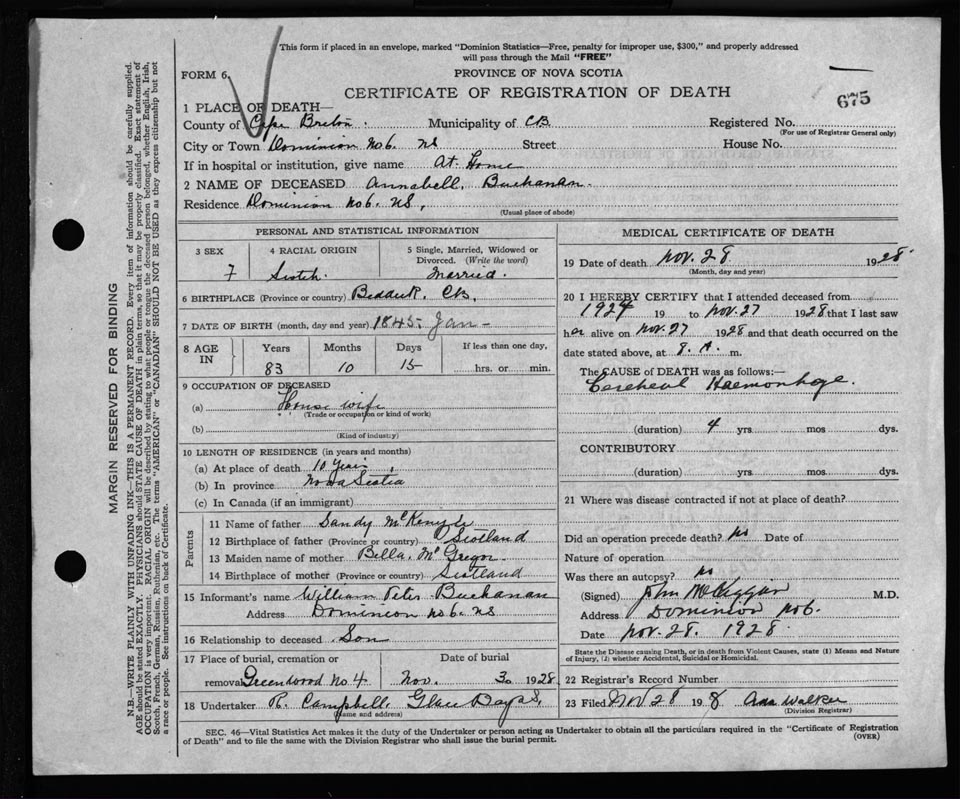 This form if placed in an envelope, marked "Dominion Statistics—Free, penalty for improper use, $300," and properly addressed
will pass through the Mail "FREE"
FORM 6.
PROVINCE OF NOVA SCOTIA
CERTIFICATE OF REGISTRATION OF DEATH
675
1 PLACE OF DEATH—
County of Cape Breton. Municipality of CB Registered No.
(For use of Registrar General only)
City or Town Dominion No 6. NS Street House No.
If in hospital or institution, give name At Home
2 NAME OF DECEASED Annabell, Buchanan.
Residence Dominion No 6. NS,
(Usual place of abode)
PERSONAL AND STATISTICAL INFORMATION
3 SEX 4 RACIAL ORIGIN 5 Single, Married, Widowed or
Divorced. (Write the word)
F Scotch Married.
6 BIRTHPLACE (Province or country) CB.
7 DATE OF BIRTH (month, day and year) 1845- Jan -
8 AGE IN Years Months Days If less than one day,
83 10 15 hrs. or min.
9 OCCUPATION OF DECEASED
(a) House wife
(Trade or occupation or kind of work)
(b)
(Kind of industry)
10 LENGTH OF RESIDENCE (in years and months)
(a) At place of death 10 Years,
(b) In province Nova Scotia
(c) In Canada (if an immigrant)
Parents
11 Name of father Sandy McKenzie
12 Birthplace of father (Province or country) Scotland
13 Maiden name of mother Bella McGregor
14 Birthplace of mother (Province or country) Scotland
15 Informant's name William Peter Buchanan
Address Dominion No 6. NS
16 Relationship to deceased Son
17 Place of burial, cremation or Date of burial
removal Greenwood No 4 Nov. 30 1928
18 Undertaker R. Campbell, Glace Bay NS,
(Name and address)
MEDICAL CERTIFICATE OF DEATH
19 Date of death Nov. 28 1928
(Month, day and year)
20 I HEREBY CERTIFY that I attended deceased from
1924 19 to Nov. 27 1928 that I last saw
her alive on Nov. 27 1928 and that death occurred on the
date stated above, at 8. A. m.
The CAUSE OF DEATH was as follows:—
Cerebral Haemorrhage.
(duration) 4 yrs. mos. dys.
CONTRIBUTORY
(duration) yrs. mos. dys.
21 Where was disease contracted if not at place of death?
Did an operation precede death? No Date of
Nature of operation
Was there an autopsy? No
(Signed) John M.D.
Address Dominion No 6.
Date Nov. 28. 1928.
State the Disease causing Death, or in death from Violent Causes, state (1) Means and Nature
of Injury, (2) whether Accidental, Suicidal or Homicidal.
22 Registrar's Record Number
23 Filed Nov 28 1928 Ann Walker
(Division Registrar)
SEC. 46—Vital Statistics Act makes it the duty of the Undertaker or person acting as Undertaker to obtain all the particulars required in the "Certificate of Registration
of Death" and to file the same with the Division Registrar who shall issue the burial permit.
(OVER)
MARGIN RESERVED FOR BINDING
N.B.—WRITE PLAINLY WITH UNFADING INK.—THIS IS A PERMANENT RECORD. Every item of information should be carefully supplied.
AGE should be stated EXACTLY. PHYSICIANS should STATE CAUSE OF DEATH in plain terms, so that it may be properly classified. Exact statement of
OCCUPATION is very important. RACIAL ORIGIN will be described by stating to what people or tongue the deceased person belonged, whether English, Irish,
Scotch, French, German, Russian, Ruthenian, etc. The terms "AMERICAN" or "CANADIAN" SHOULD NOT BE USED as they express citizenship but not
a race or people. See instructions on back of Certificate.